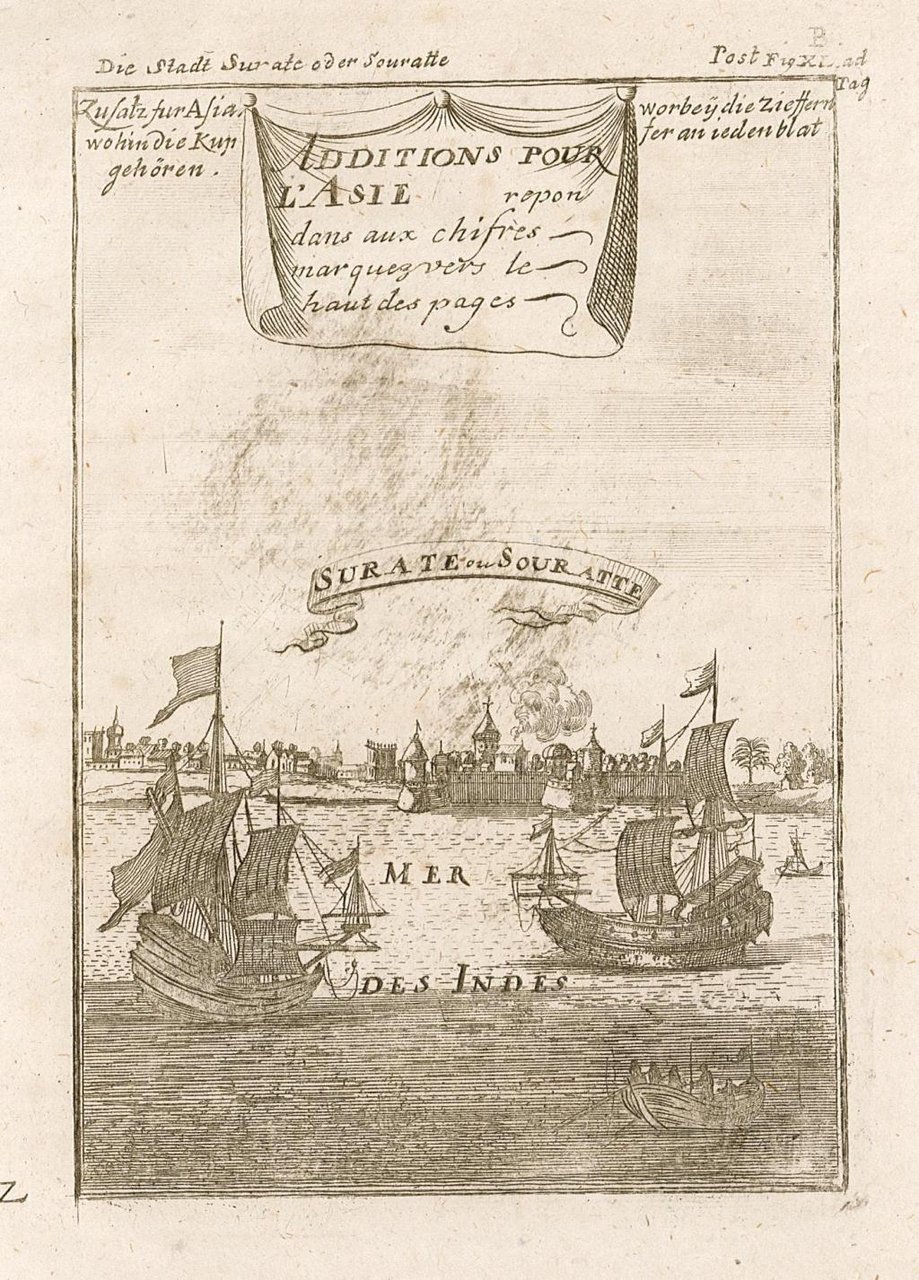 P
Die Stadt Surate oder Souratte
Post Fig XL ad
Pag
Zusatz fur Asia
wohin die Kup
gehören.
worbeÿ die Zieffern
fer an ieden blat
ADDITIONS POUR
L'ASIE repon
dans aux chifres
marquez vers le
haut des pages
SURATE ou SOURATTE
MER
DES INDES
Z